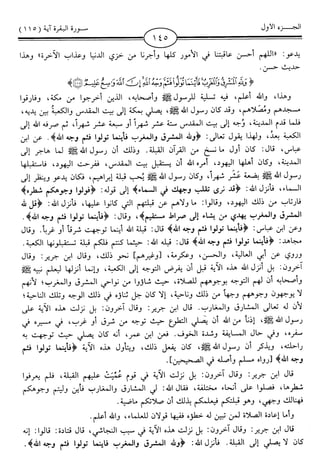 الجـــزء الأول
سـورة البقرة آية (١١٥)
١٤٥
يدعو: «اللهم أحسن عاقبتنا في الأمور كلها وأجرنا من خزي الدنيا وعذاب الآخرة» وهذا
حديث حسن.
﴿وَلِلَّهِ الْمَشْرِقُ وَالْمَغْرِبُ فَأَيْنَمَا تُوَلُّوا فَثَمَّ وَجْهُ اللَّهِ إِنَّ اللَّهَ وَاسِعٌ عَلِيمٌ﴾
وهذا، والله أعلم، فيه تسلية للرسول ﷺ وأصحابه، الذين أخرجوا من مكة، وفارقوا
مسجدهم ومصلاهم، وقد كان رسول الله ﷺ، يصلي بمكة إلى بيت المقدس والكعبة بين يديه،
فلما قدم المدينة، وُجه إلى بيت المقدس ستة عشر شهراً أو سبعة عشر شهراً، ثم صرفه الله إلى
الكعبة بعدُ، ولهذا يقول تعالى: ﴿ولله المشرق والمغرب فأينما تولوا فثم وجه الله﴾. عن ابن
عباس، قال: كان أول ما نسخ من القرآن القبلة. وذلك أن رسول الله ﷺ لما هاجر إلى
المدينة، وكان أهلها اليهود، أمره الله أن يستقبل بيت المقدس، ففرحت اليهود، فاستقبلها
رسول الله ﷺ بضعة عشر شهراً، وكان رسول الله ﷺ يُحب قبلة إبراهيم، فكان يدعو وينظر إلى
السماء، فأنزل الله: ﴿قد نرى تقلب وجهك في السماء﴾ إلى قوله: ﴿فولوا وجوهكم شطره﴾
فارتاب من ذلك اليهود، وقالوا: ما ولاهم عن قبلتهم التي كانوا عليها، فأنزل الله: ﴿قل لله
المشرق والمغرب يهدي من يشاء إلى صراط مستقيم﴾، وقال: ﴿فأينما تولوا فثم وجه الله﴾.
وعن ابن عباس: ﴿فأينما تولوا فثم وجه الله﴾ قال: قبلة الله أينما توجهت شرقاً أو غرباً. وقال
مجاهد: ﴿فأينما تولوا فثم وجه الله﴾ قال: قبلة الله: حيثما كنتم فلكم قبلة تستقبلونها الكعبة.
وروي عن أبي العالية، والحسن، وعكرمة، [وغيرهم] نحو ذلك، وقال ابن جرير: وقال
آخرون: بل أنزل الله هذه الآية قبل أن يفرض التوجه إلى الكعبة، وإنما أنزلها ليعلم نبيه ﷺ
وأصحابه أن لهم التوجه بوجوههم للصلاة، حيث شاؤوا من نواحي المشرق والمغرب؛ لأنهم
لا يوجهون وجوههم وجهاً من ذلك وناحية، إلا كان جل ثناؤه في ذلك الوجه وتلك الناحية؛
لأن له تعالى المشارق والمغارب. قال ابن جرير: وقال آخرون: بل نزلت هذه الآية على
رسول الله ﷺ، إذناً من الله أن يصلي التطوع حيث توجه من شرق أو غرب، في مسيره في
سفره، وفي حال المسايفة وشدة الخوف. فعن ابن عمر، أنه كان يصلي حيث توجهت به
راحلته، ويذكر أن رسول الله ﷺ، كان يفعل ذلك، ويتأول هذه الآية ﴿فأينما تولوا فثم
وجه الله﴾ [رواه مسلم وأصله في الصحيحين].
قال ابن جرير: وقال آخرون: بل نزلت الآية في قوم عُمِّيَتْ عليهم القبلة، فلم يعرفوا
شطرها، فصلوا على أنحاء مختلفة، فقال الله: لي المشارق والمغارب فأين وليتم وجوهكم
فهنالك وجهي، وهو قبلتكم فيعلمكم بذلك أن صلاتكم ماضية.
وأما إعادة الصلاة لمن تبين له خطؤه ففيها قولان للعلماء، والله أعلم.
قال ابن جرير: وقال آخرون: بل نزلت هذه الآية في سبب النجاشي، قال قتادة: قالوا: إنه
كان لا يصلي إلى القبلة. فأنزل الله: ﴿ولله المشرق والمغرب فأينما تولوا فثم وجه الله﴾.